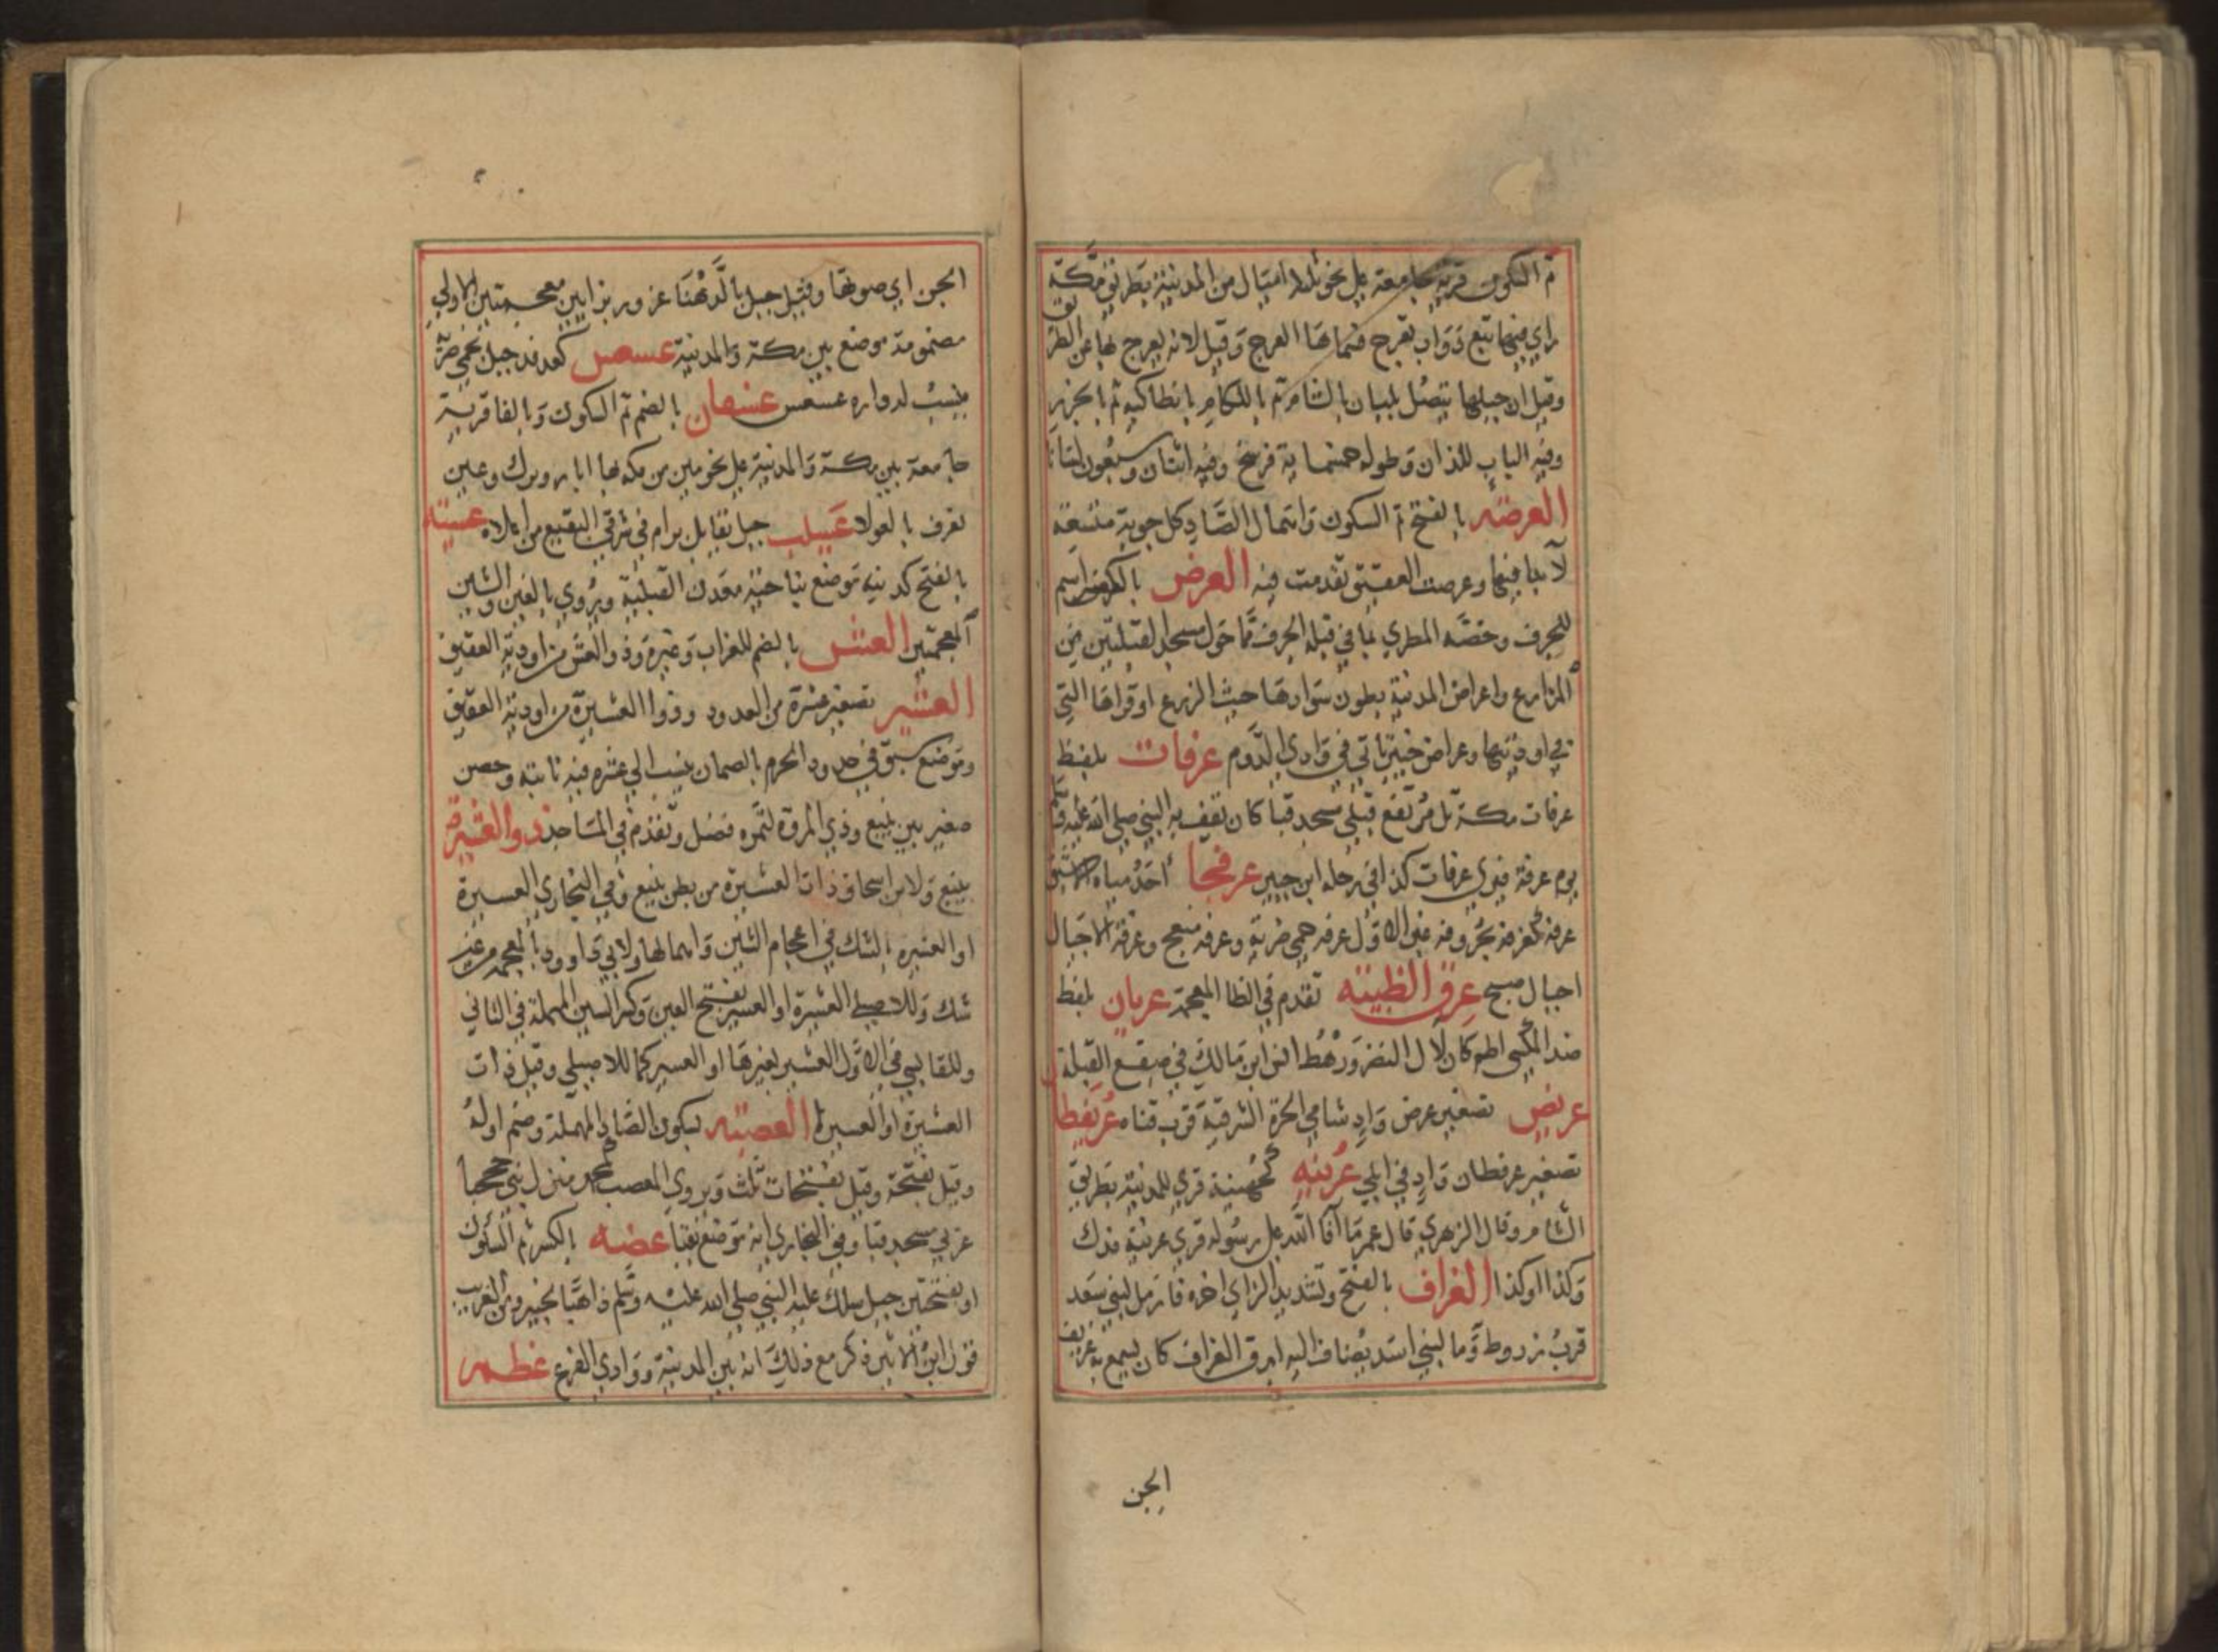 ثم السكون قرية جامعة على نحو ثلاثة اميال من المدينة بطريق مكة
راي فيها تبع دواب تعرج فسماها العرج وقيل لانه يعرج بها عن الطريق
وقيل ان جبلها يتصل بلبنان بالشام ثم باللكام بانطاكية ثم بالجزر
وفيه الباب للذان وطوله خمسماية فرسخ وفيه اثنان وسبعون لسانا
العرصه بالفتح ثم السكون واهمال الصاد كل جوبة متسعة
لا بنا فيها وعرصت العقيق تقدمت فيه العرض بالكسر اسم
للجرف وخصه المطري بما في قبلة الجرف مما حول مسجد القبلتين من
المزارع واعراض المدينة بطون سوادها حيث الزرع او قراها التي
في اوديتها وعراض خيبر ياتي في وادي الدوم عرفات بلفظ
عرفات مكة تل مرتفع قبلي مسجد قبا كان يقف به النبي صلى الله عليه وسلم
يوم عرفة فيرى عرفات كذا في رحلة ابن جبير عرفجا احد مياه الاشيق
عرفة كغرفة بحروفه في الاول عرفه حمى ضرية وعرفه منعج وعرفة الاجبال
اجبال صبح عرق الظبيه تقدم في الظا المعجمة عريان بلفظ
ضد المكسي اطم كان لال النضر ورهط انس ابن مالك في صقع القبلة
عريض تصغير عرض واد شامي الحرة الشرقية قرب قناه عريفطا
تصغير عرفطان واد في ابلي عرينه كجهينة قرى للمدينة بطريق
الشام وقال الزهري قال عمر ما آفا الله على رسوله قرى عرينة فدك
وكذا او كذا العزاف بالفتح وتشديد الزاي اخره فا رمل لبني سعد
قرب زرود وما لبني اسد يضاف اليه ابرق العزاف كان يسمع به عزيف
الجن
الجن اي صوتها وقيل جبل بالدهنا عزور بزايين معجمتين الاولى
مضمومة موضع بين مكة والمدينة عسعس كفدفد جبل بحمى ضرية
ينسب له داره عسعس عسفان بالضم ثم السكون وبالفا قرية
جامعة بين مكة والمدينة على نحو يومين من مكه بها ابار وبرك وعين
تعرف بالعولا عسيب جبل يقابل برام في شرقي البقيع من اعلاه عسيه
بالفتح كدنيه موضع بناحية معدن القبلية ويروي بالغين والشين
المعجمتين العش بالضم للغراب وغيره وذو العش من اودية العقيق
العشير تصغير عشرة من العدود وذوا العشيرة من اودية العقيق
وموضع سبق في حدود الحرم بالصمان ينسب الى عشره فيه نابته وحصن
صغير بين ينبع وذي المروة لتمره فضل وتقدم في المساجد ذو العشيرة
بينبع ولابن اسحاق ذات العشيرة من بطن ينبع وفي البخاري العسيرة
او العشيره بالشك في اعجام الشين واهمالها ولابي داوود بالمعجمه من غير
شك وللاصيلي العشيرة او العسير بفتح العين وكسر السين المهملة في الثاني
وللقابسي في الاول العشير بغيرها او العسير كما للاصيلي وقيل ذات
العشيرة او العسيرة العصبه بسكون الصاد المهملة وضم اوله
وقيل بفتحة وقيل بفتحات ثلث ويروي المعصب كمحمد منزل بني جحجبا
غربي مسجد قبا وفي البخاري انه موضع بقبا عصه بالكسر ثم السكون
او بفتحتين جبل سلك عليه النبي صلى الله عليه وسلم ذاهبا لخيبر ومن الغريب
قول ابن الاثير ذكر مع ذلك انه بين المدينة ووادي الفرع عظم